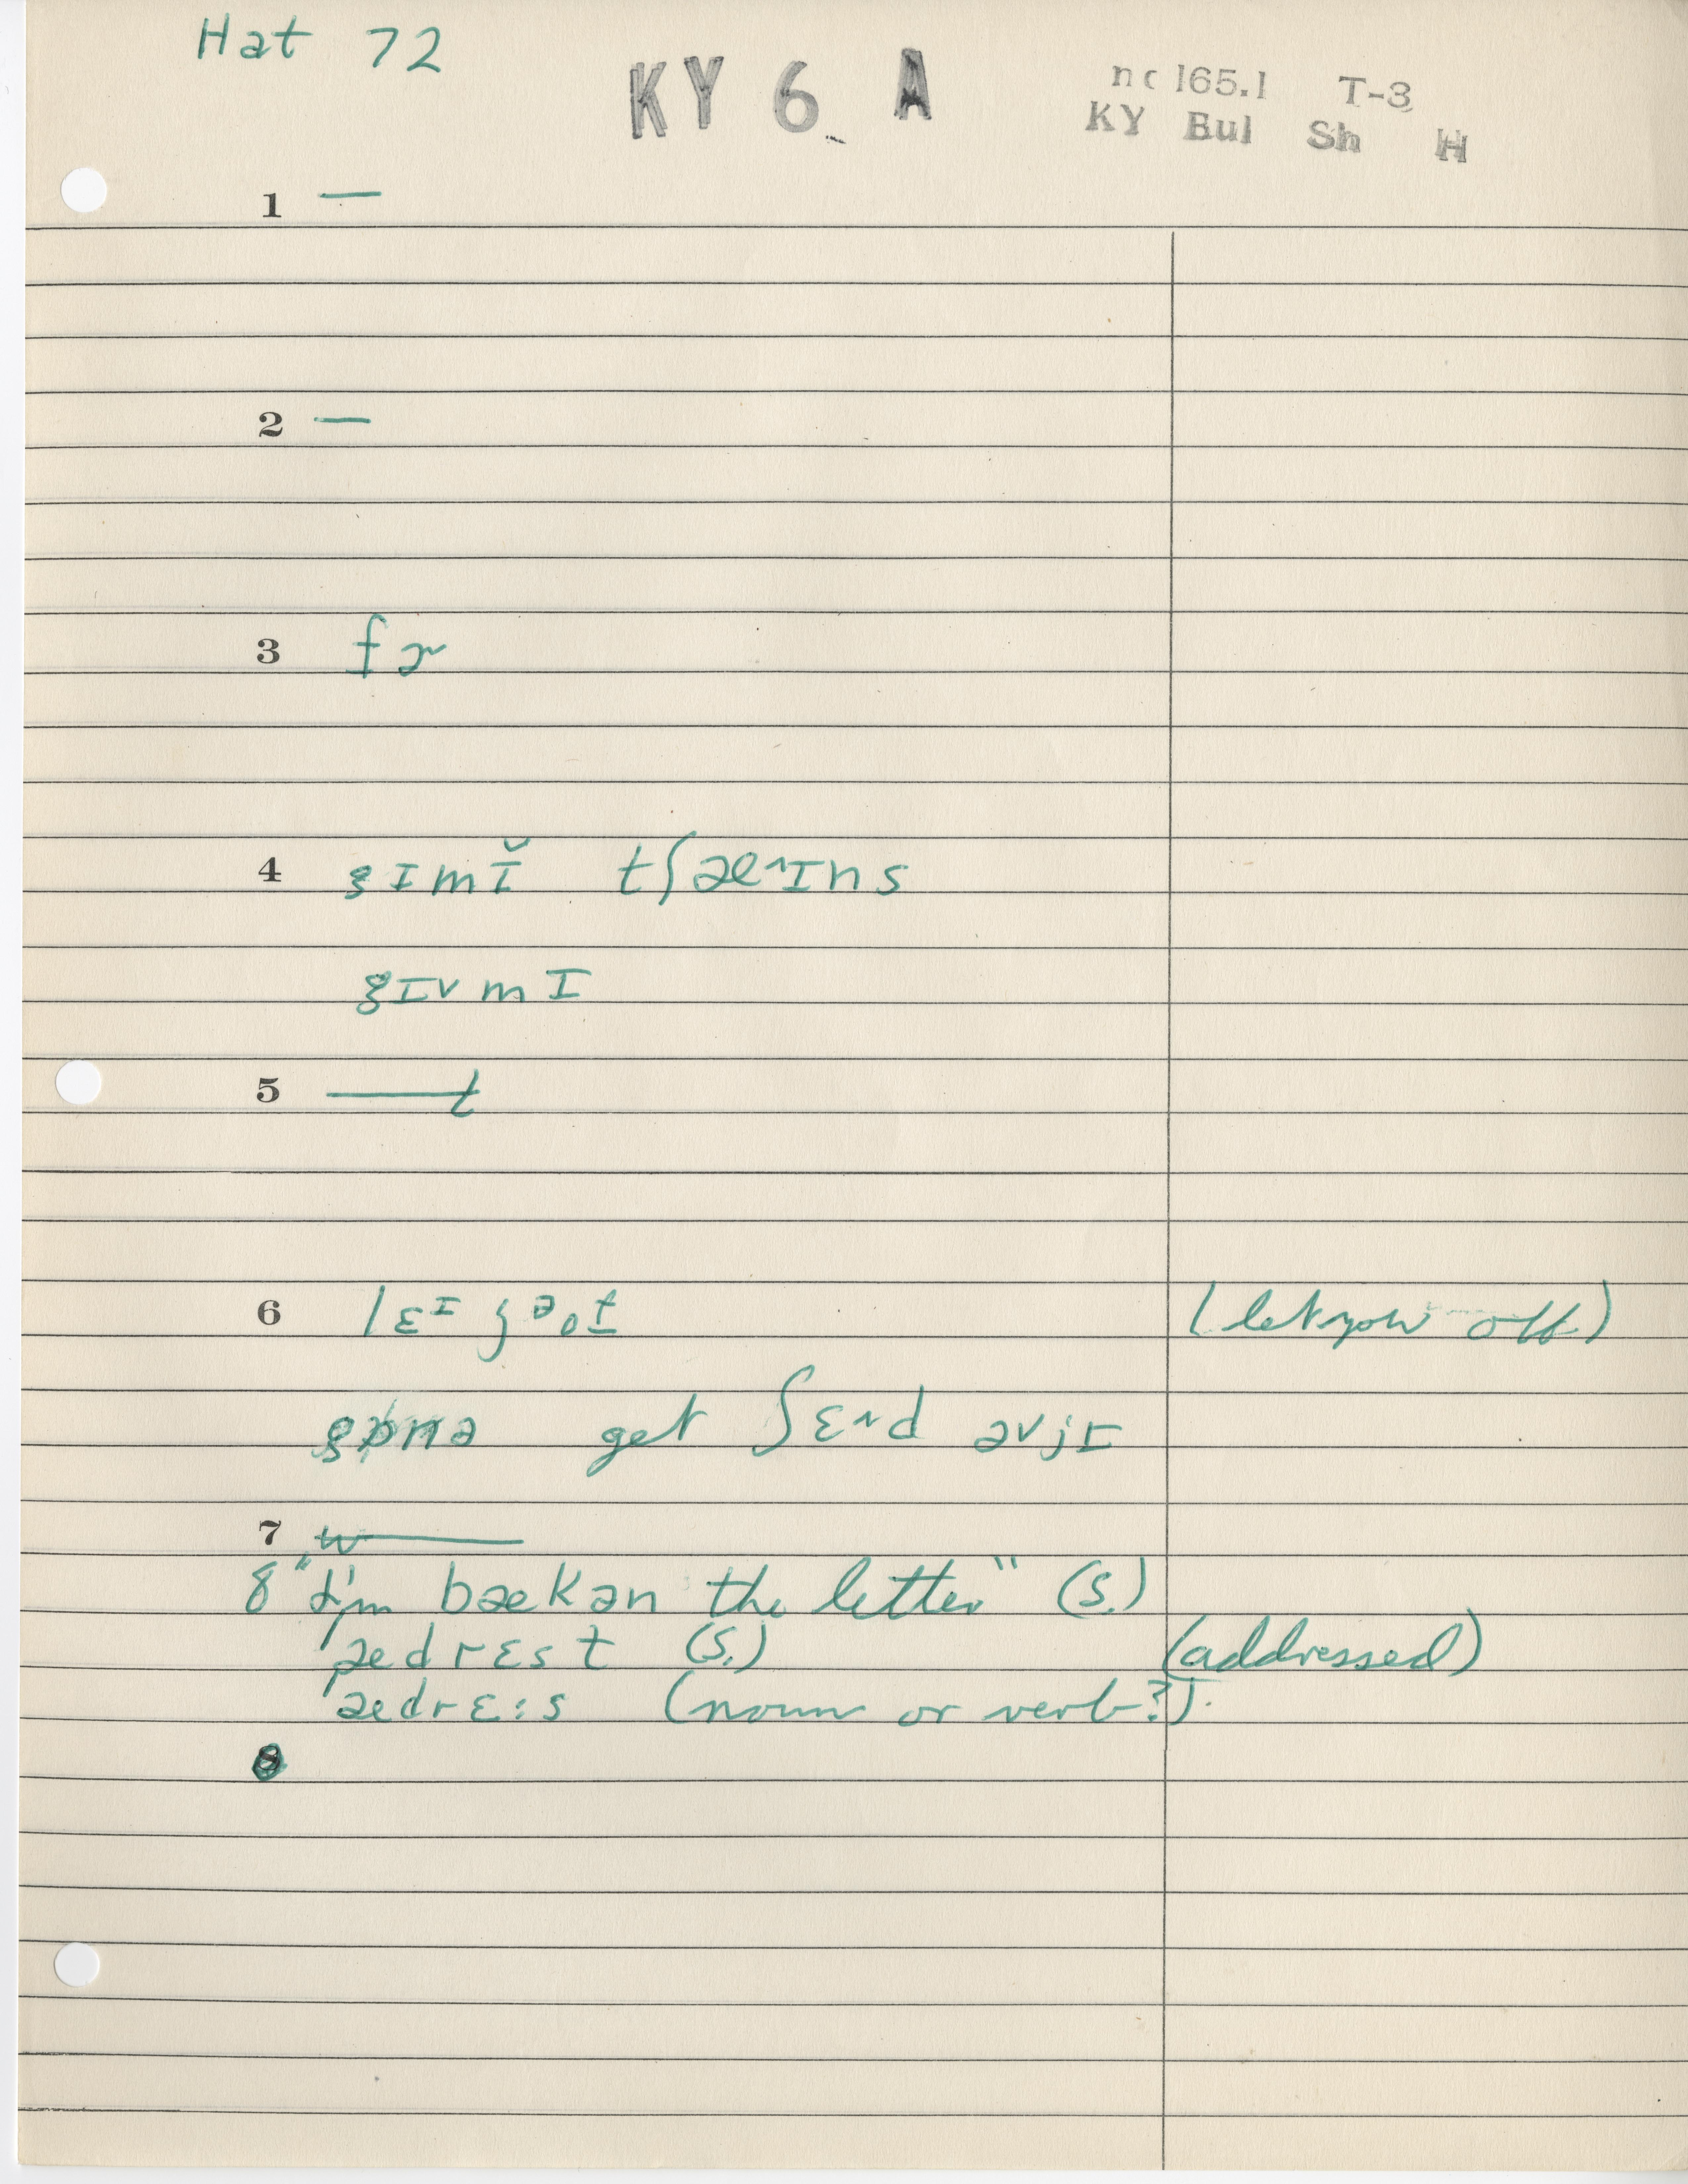 Hat 72
KY 6 A
nc 165.1 T-3
KY Bul Sh H
1 —
2 —
3 fɚ
4 gɪmɪ̆ tʃæ˞ɪns
gɪvmɪ
5 —t
6 (let you off)
get ʃɛ˞d əvjɪ
7 w—
8 "I'm bækən the letter" (S.)
ædrɛst (S.) (addressed)
ædrɛ:s (noun or verb?).
8